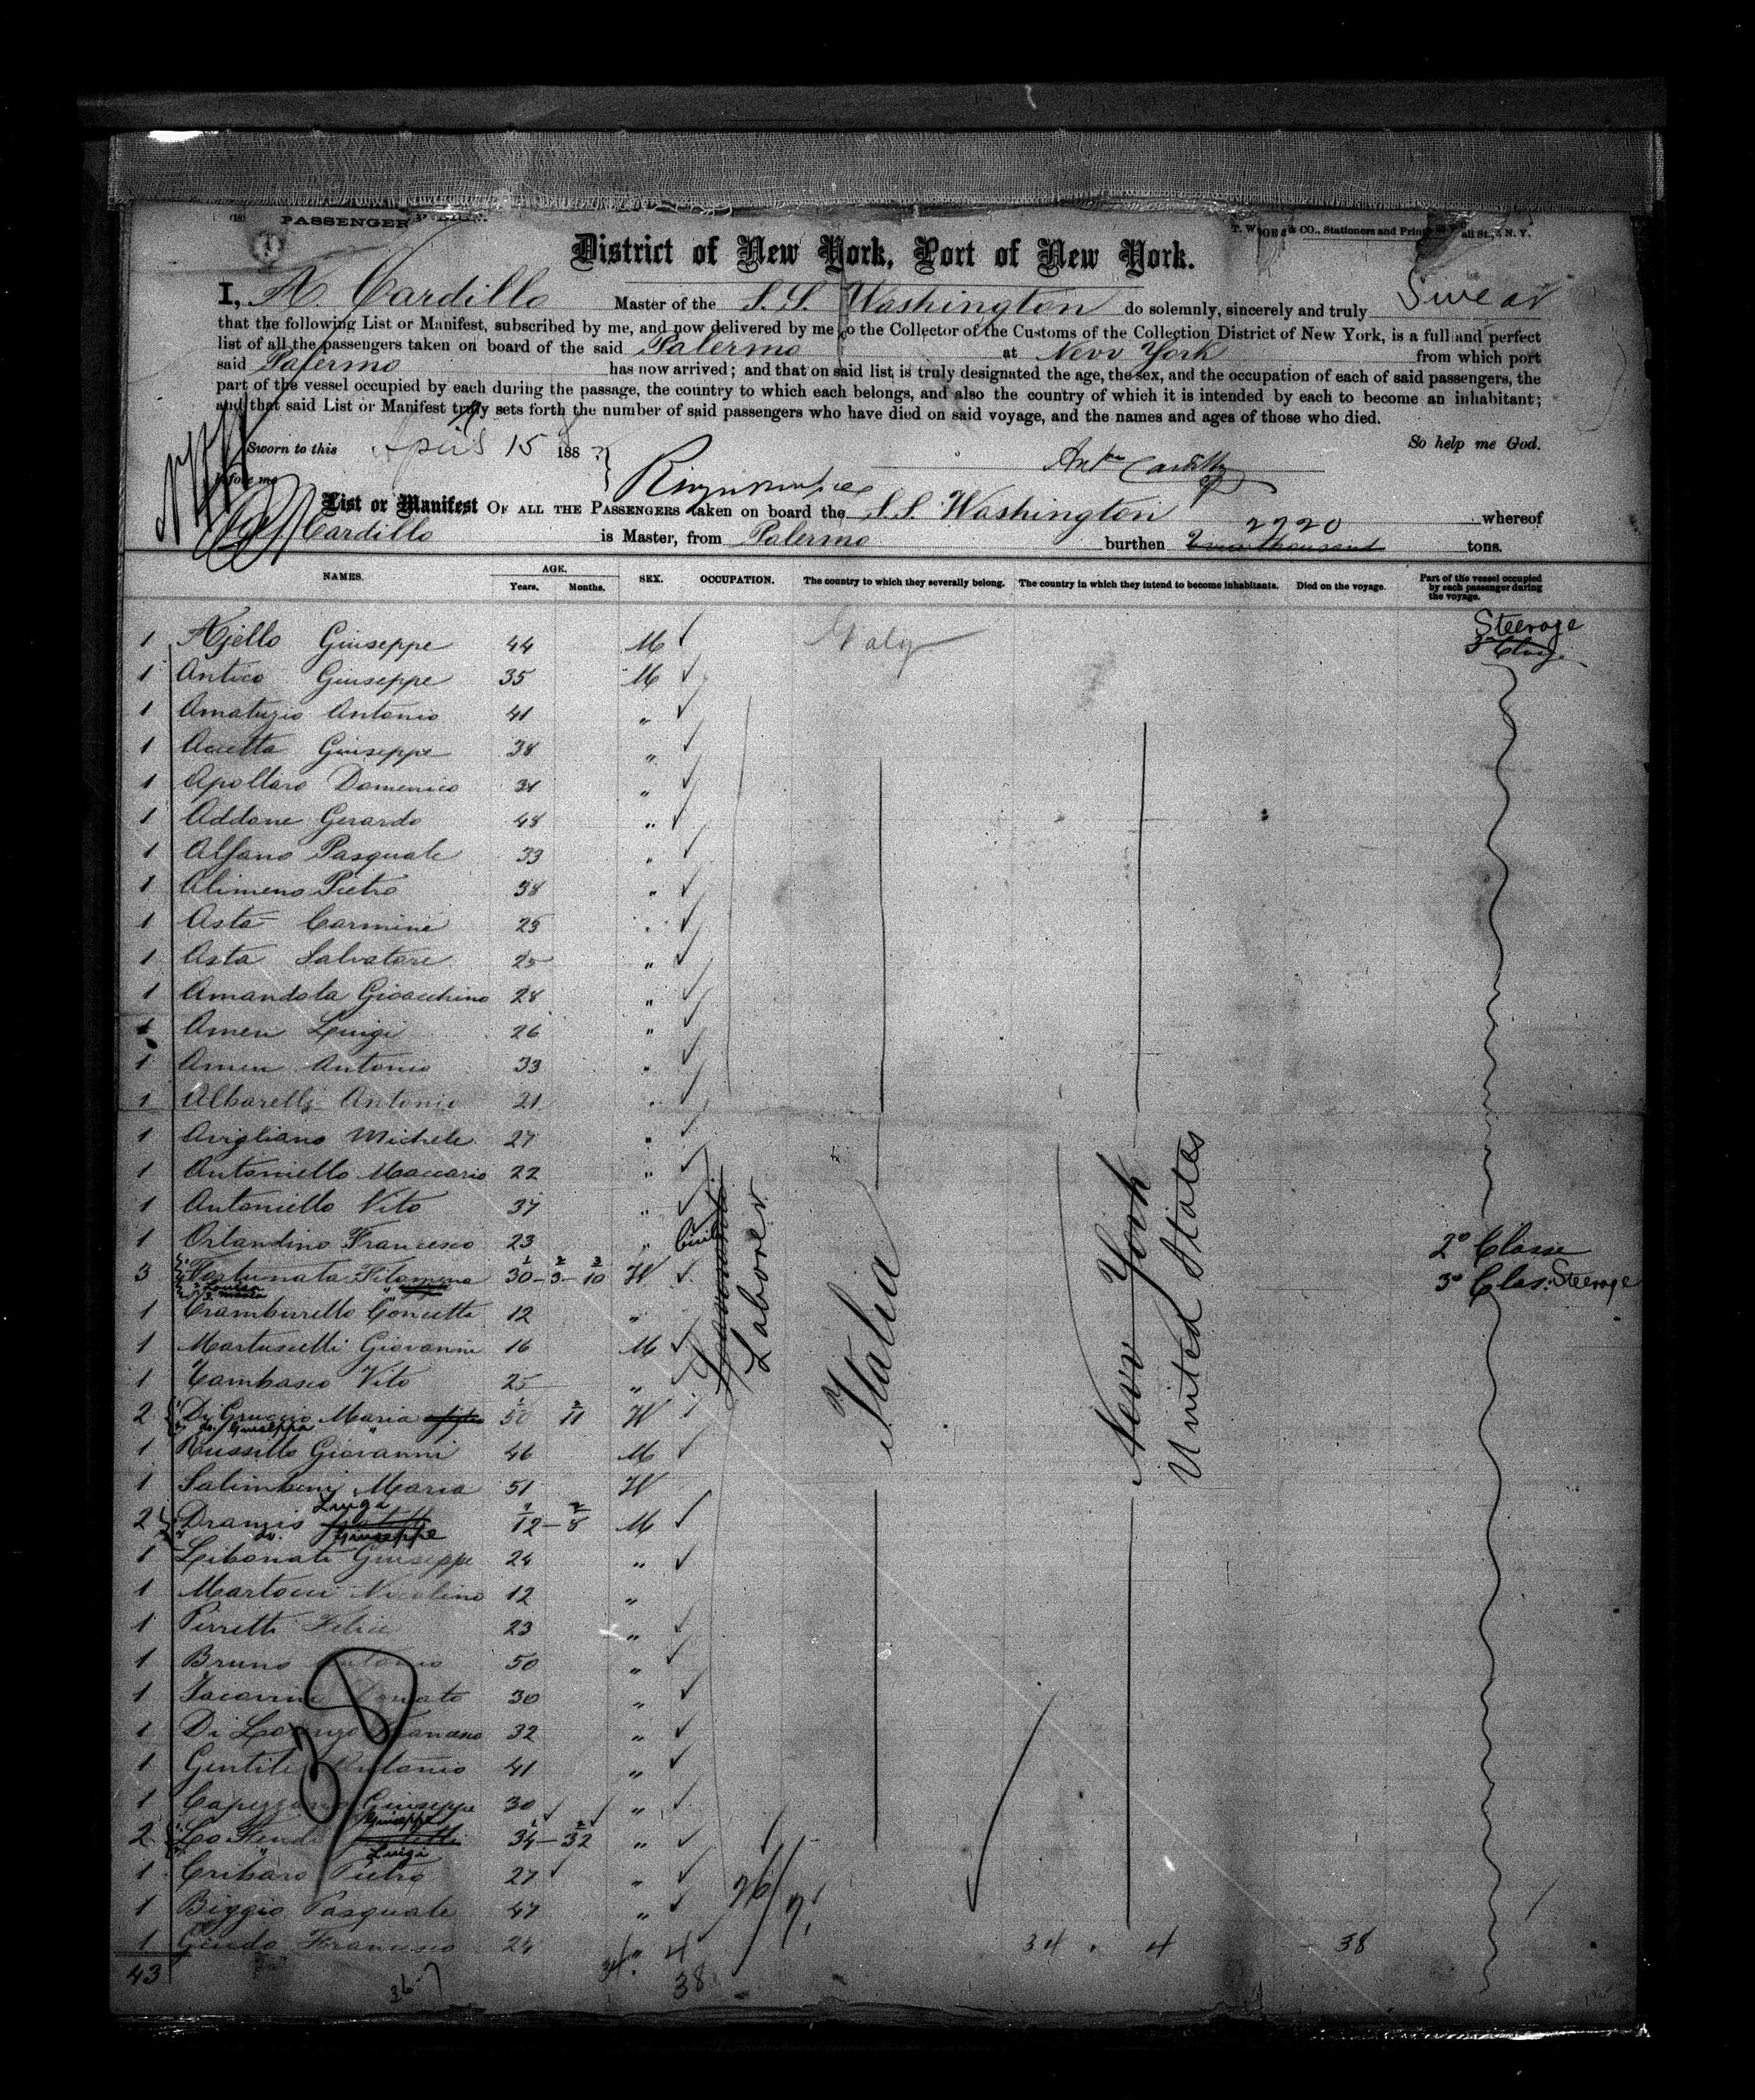 PASSENGER
T. W & CO., Stationers and Print all St., N. Y.
District of New York, Port of New York.
I, A. Cardillo Master of the S.S. Washington do solemnly, sincerely and truly Swear
that the following List or Manifest, subscribed by me, and now delivered by me to the Collector of the Customs of the Collection District of New York, is a full and perfect
list of all the passengers taken on board of the said Palermo at New York from which port
said Palermo has now arrived; and that on said list is truly designated the age, the sex, and the occupation of each of said passengers, the
part of the vessel occupied by each during the passage, the country to which each belongs, and also the country of which it is intended by each to become an inhabitant;
and that said List or Manifest truly sets forth the number of said passengers who have died on said voyage, and the names and ages of those who died.
Sworn to this April 15 188 So help me God.
before me
List or Manifest OF ALL THE PASSENGERS taken on board the S.S. Washington whereof
Cardillo is Master, from Palermo burthen 2720 tons.
NAMES. AGE. Years. Months. SEX. OCCUPATION. The country to which they severally belong. The country in which they intend to become inhabitants. Died on the voyage. Part of the vessel occupied by each passenger during the voyage.
1 Ajello Giuseppe 44 M Italy Steerage
1 Antico Giuseppe 35 M
1 Amatuzio Antonio 41 "
1 Accetta Giuseppe 38 "
1 Apollaro Domenico 31 "
1 Addone Gerardo 48 "
1 Alfano Pasquale 33 "
1 Alimena Pietro 38 "
1 Asta Carmine 25 "
1 Asta Salvatore 25 "
1 Amandola Gioacchino 28 "
1 Amen Luigi 26 "
1 Amen Antonio 33 "
1 Albarelli Antonio 21 "
1 Avigliano Michele 27 "
1 Antoniello Maccario 22 "
1 Antoniello Vito 37 "
1 Orlandino Francesco 23 " Civile 2º Classe
3 Fortunata Filomena 30 - 3 - 10 W 3º Clas. Steerage
1 Cramburello Concetta 12 "
1 Martuscelli Giovanni 16 M
1 Tambasco Vito 25 "
2 Di Gruccio Maria 50 11 W
do. Giuseppa
1 Russillo Giovanni 46 M
1 Salimbeni Maria 51 W
Luigi
2 Dramis 12 - 8 M
do. Giuseppe
1 Libonati Giuseppe 24 "
1 Martocci Nicolino 12 "
1 Perretti Felice 23 "
1 Bruno Antonio 50 "
1 Donato 30 "
1 Di Lorenzo Francesco 32 "
1 Gentile Antonio 41 "
1 Giuseppe 30 "
Giuseppe
2 34 - 32 "
Luigi
1 Cribaro Pietro 27 "
1 Biggio Pasquale 47 "
1 Francesco 24 "
Laborer
Italia
New York
United States
43
38
34 4 38